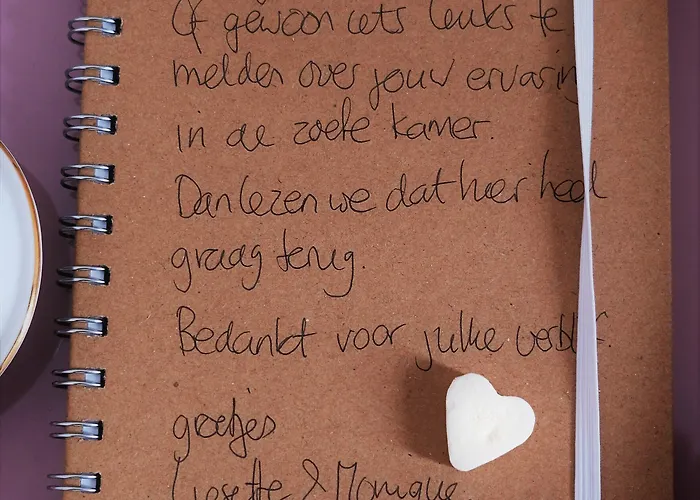 Of gewoon iets leuks te
melden over jouw ervaring
in de zoete kamer.
Dan lezen we dat hier heel
graag terug.
Bedankt voor jullie verblijf.
groetjes
Lisette & Monique